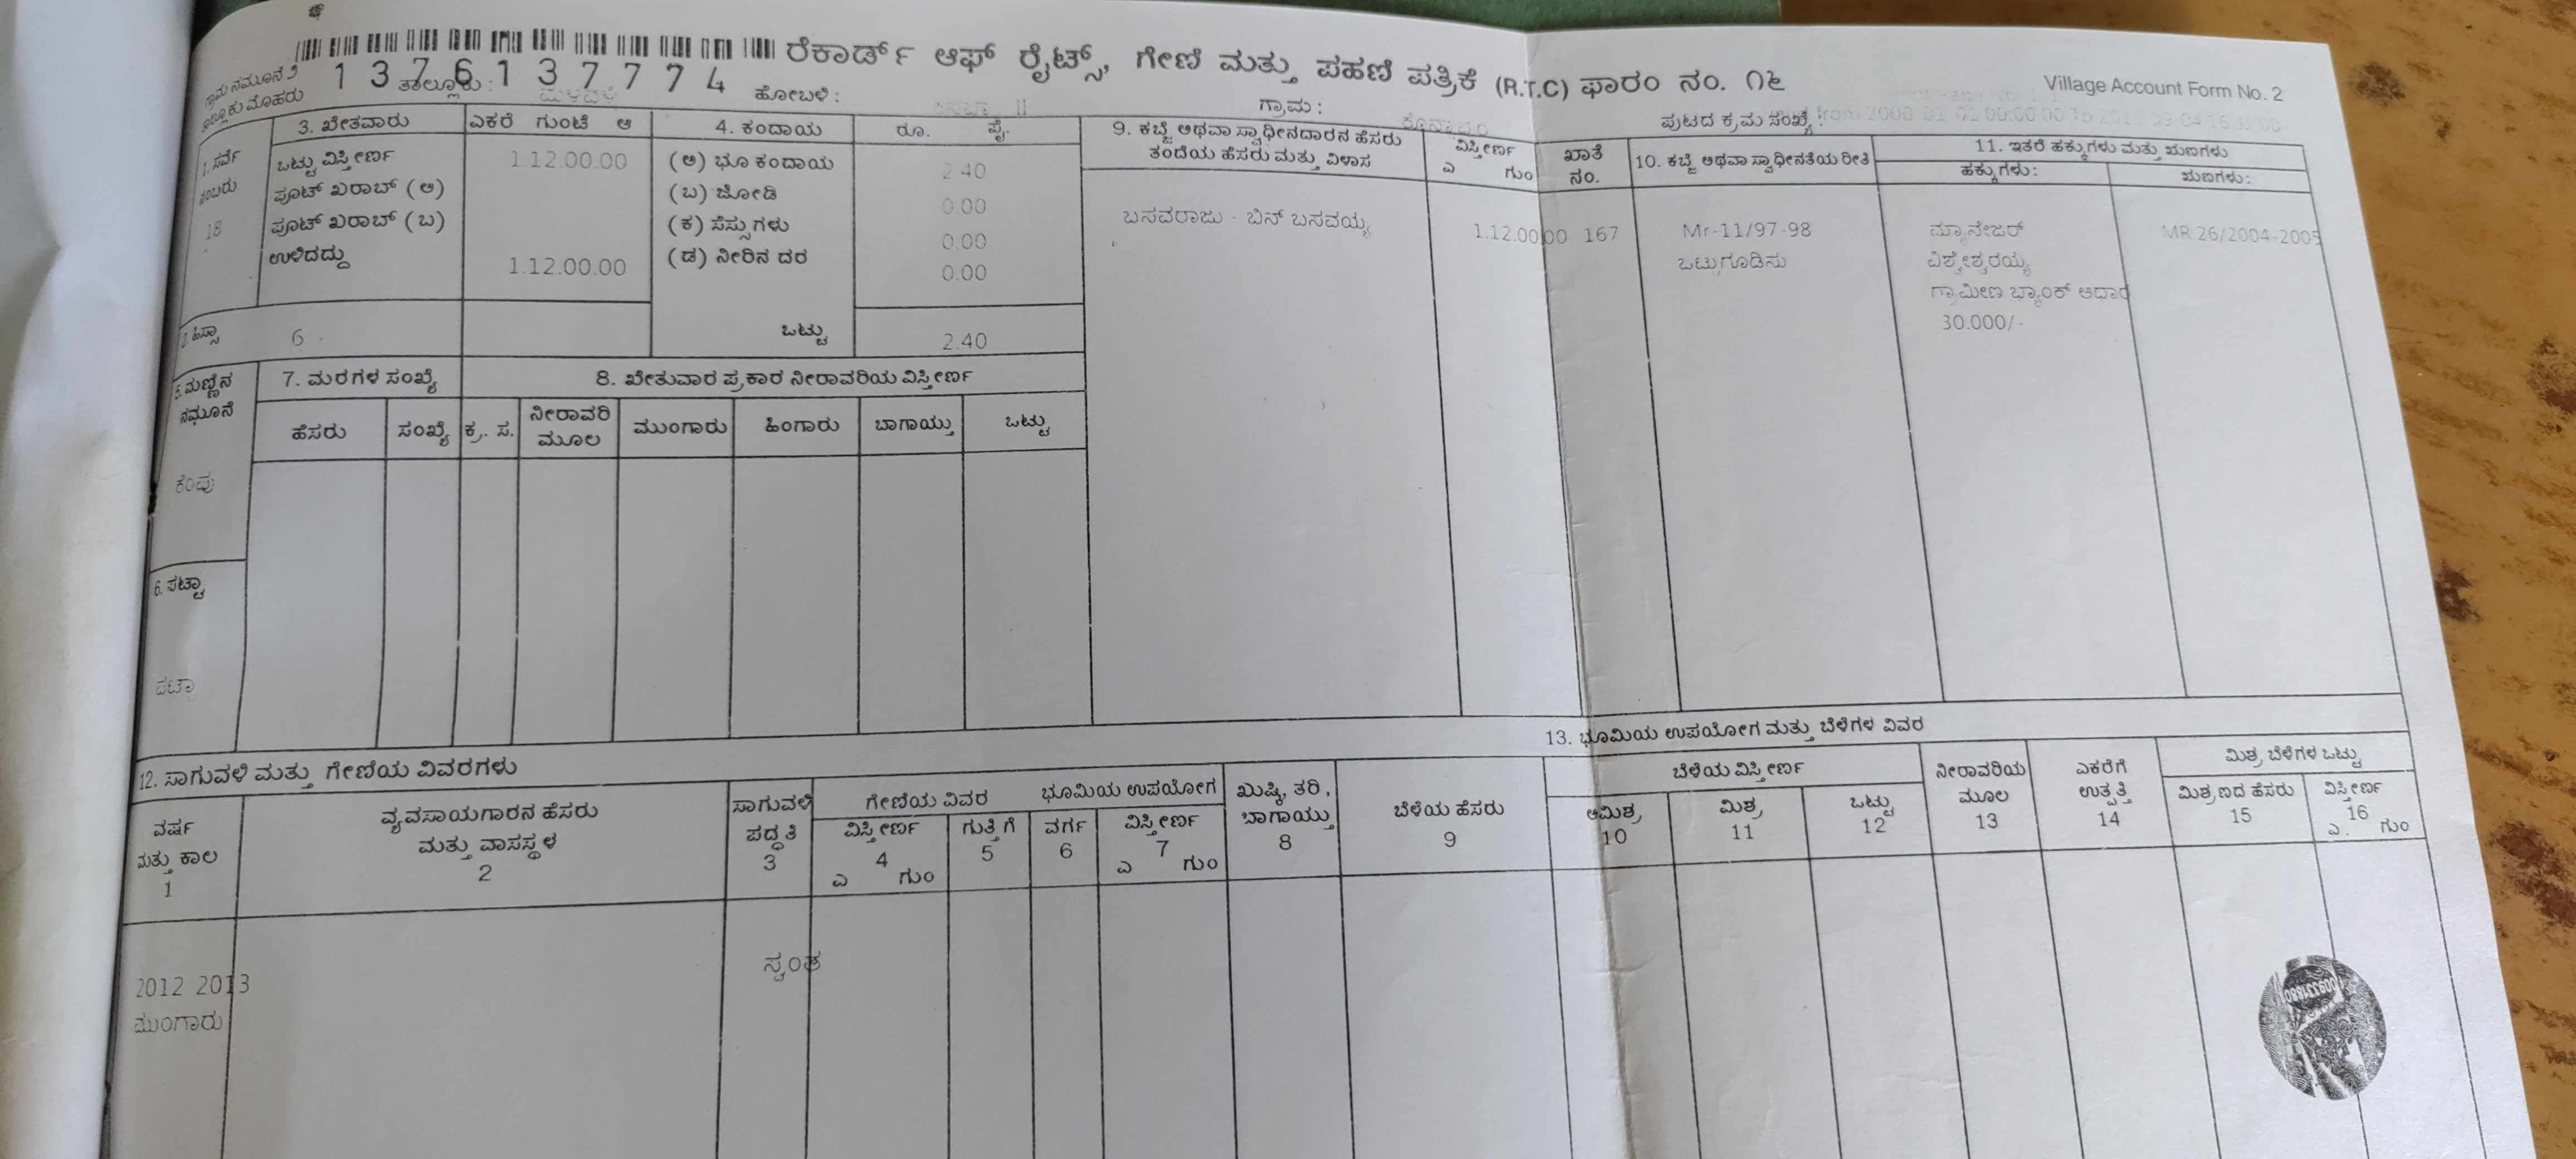 ರೆಕಾರ್ಡ್ ಆಫ್ ರೈಟ್ಸ್, ಗೇಣಿ ಮತ್ತು ಪಹಣಿ ಪತ್ರಿಕೆ (R.T.C) ಫಾರಂ ನಂ. ೧೬
Village Account Form No. 2
ಗ್ರಾಮ ನಮೂನೆ ೨
1376137774
ತಾಲ್ಲೂಕು :
ಹೋಬಳಿ :
ಗ್ರಾಮ :
ಪುಟದ ಕ್ರಮ ಸಂಖ್ಯೆ :
1. ಸರ್ವೆ
ನಂಬರು
18
3. ಖೇತವಾರು ಎಕರೆ ಗುಂಟೆ ಆ
ಒಟ್ಟು ವಿಸ್ತೀರ್ಣ 1.12.00.00
ಪೂಟ್ ಖರಾಬ್ (ಅ)
ಪೂಟ್ ಖರಾಬ್ (ಬ)
ಉಳಿದದ್ದು 1.12.00.00
2. ಹಿಸ್ಸಾ 6
4. ಕಂದಾಯ ರೂ. ಪೈ.
(ಅ) ಭೂ ಕಂದಾಯ 2.40
(ಬ) ಜೋಡಿ 0.00
(ಕ) ಸೆಸ್ಸುಗಳು 0.00
(ಡ) ನೀರಿನ ದರ 0.00
ಒಟ್ಟು 2.40
9. ಕಬ್ಜೆ ಅಥವಾ ಸ್ವಾಧೀನದಾರನ ಹೆಸರು
ತಂದೆಯ ಹೆಸರು ಮತ್ತು ವಿಳಾಸ
ವಿಸ್ತೀರ್ಣ
ಎ ಗುಂ
ಖಾತೆ
ನಂ.
10. ಕಬ್ಜೆ ಅಥವಾ ಸ್ವಾಧೀನತೆಯ ರೀತಿ
11. ಇತರೆ ಹಕ್ಕುಗಳು ಮತ್ತು ಋಣಗಳು
ಹಕ್ಕುಗಳು: ಋಣಗಳು:
ಬಸವರಾಜು - ಬಿನ್ ಬಸವಯ್ಯ 1.12.00.00 167 Mr-11/97-98
ಒಟ್ಟುಗೂಡಿಸು
ಮ್ಯಾನೇಜರ್
ವಿಶ್ವೇಶ್ವರಯ್ಯ
ಗ್ರಾಮೀಣ ಬ್ಯಾಂಕ್ ಆದಾರ
30.000/-
MR 26/2004-2005
5. ಮಣ್ಣಿನ
ನಮೂನೆ
ಕೆಂಪು
6. ಪಟ್ಟಾ
ಪಟ್ಟಾ
7. ಮರಗಳ ಸಂಖ್ಯೆ
ಹೆಸರು ಸಂಖ್ಯೆ
8. ಖೇತುವಾರ ಪ್ರಕಾರ ನೀರಾವರಿಯ ವಿಸ್ತೀರ್ಣ
ಕ್ರ. ಸ. ನೀರಾವರಿ ಮೂಲ ಮುಂಗಾರು ಹಿಂಗಾರು ಬಾಗಾಯ್ತು ಒಟ್ಟು
12. ಸಾಗುವಳಿ ಮತ್ತು ಗೇಣಿಯ ವಿವರಗಳು
13. ಭೂಮಿಯ ಉಪಯೋಗ ಮತ್ತು ಬೆಳೆಗಳ ವಿವರ
ವರ್ಷ
ಮತ್ತು ಕಾಲ
1
ವ್ಯವಸಾಯಗಾರನ ಹೆಸರು
ಮತ್ತು ವಾಸಸ್ಥಳ
2
ಸಾಗುವಳಿ
ಪದ್ಧತಿ
3
ಗೇಣಿಯ ವಿವರ
ವಿಸ್ತೀರ್ಣ
4
ಎ ಗುಂ
ಗುತ್ತಿಗೆ
5
ಭೂಮಿಯ ಉಪಯೋಗ
ವರ್ಗ
6
ವಿಸ್ತೀರ್ಣ
7
ಎ ಗುಂ
ಖುಷ್ಕಿ, ತರಿ,
ಬಾಗಾಯ್ತು
8
ಬೆಳೆಯ ಹೆಸರು
9
ಬೆಳೆಯ ವಿಸ್ತೀರ್ಣ
ಅಮಿಶ್ರ
10
ಮಿಶ್ರ
11
ಒಟ್ಟು
12
ನೀರಾವರಿಯ
ಮೂಲ
13
ಎಕರೆಗೆ
ಉತ್ಪತ್ತಿ
14
ಮಿಶ್ರ ಬೆಳೆಗಳ ಒಟ್ಟು
ಮಿಶ್ರಣದ ಹೆಸರು
15
ವಿಸ್ತೀರ್ಣ
16
ಎ. ಗುಂ
2012 2013
ಮುಂಗಾರು
ಸ್ವಂತ